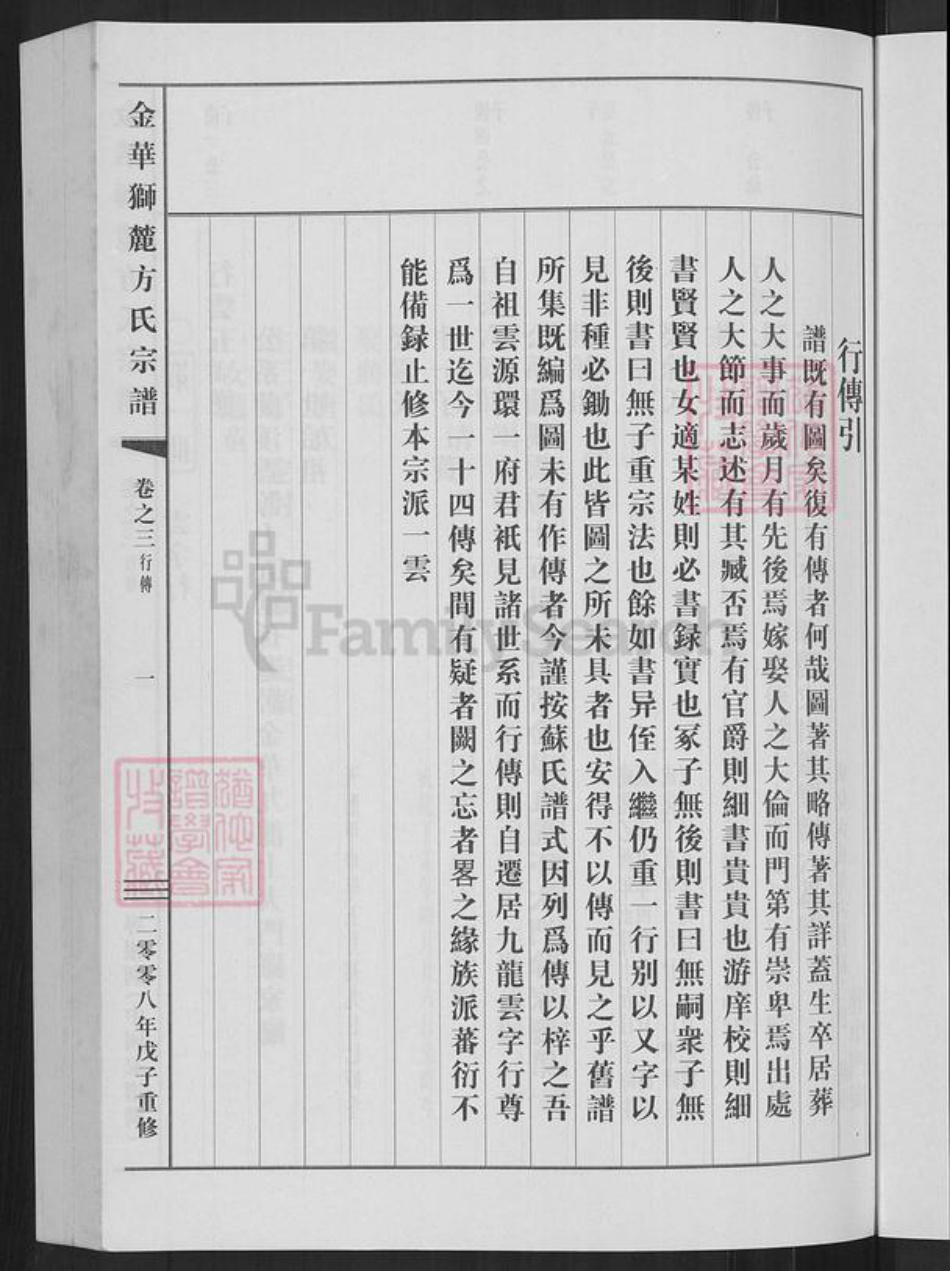 行傳引
譜既有圖矣復有傳者何哉圖著其略傳著其詳蓋生卒居葬
人之大事而歲月有先後焉嫁娶人之大倫而門第有崇卑焉出處
人之大節而志述有其臧否焉有官爵則細書貴貴也游庠校則細
書賢賢也女適某姓則必書録實也冢子無後則書曰無嗣衆子無
後則書曰無子重宗法也餘如書异侄入繼仍重一行别以又字以
見非種必鋤也此皆圖之所未具者也安得不以傳而見之乎舊譜
所集既編爲圖未有作傳者今謹按蘇氏譜式因列爲傳以梓之吾
自祖雲源環一府君衹見諸世系而行傳則自遷居九龍雲字行尊
爲一世迄今一十四傳矣間有疑者闕之忘者畧之緣族派蕃衍不
能備録止修本宗派一雲
金華獅麓方氏宗譜
卷之三行傳
一
二零零八年戊子重修
FamilySearch